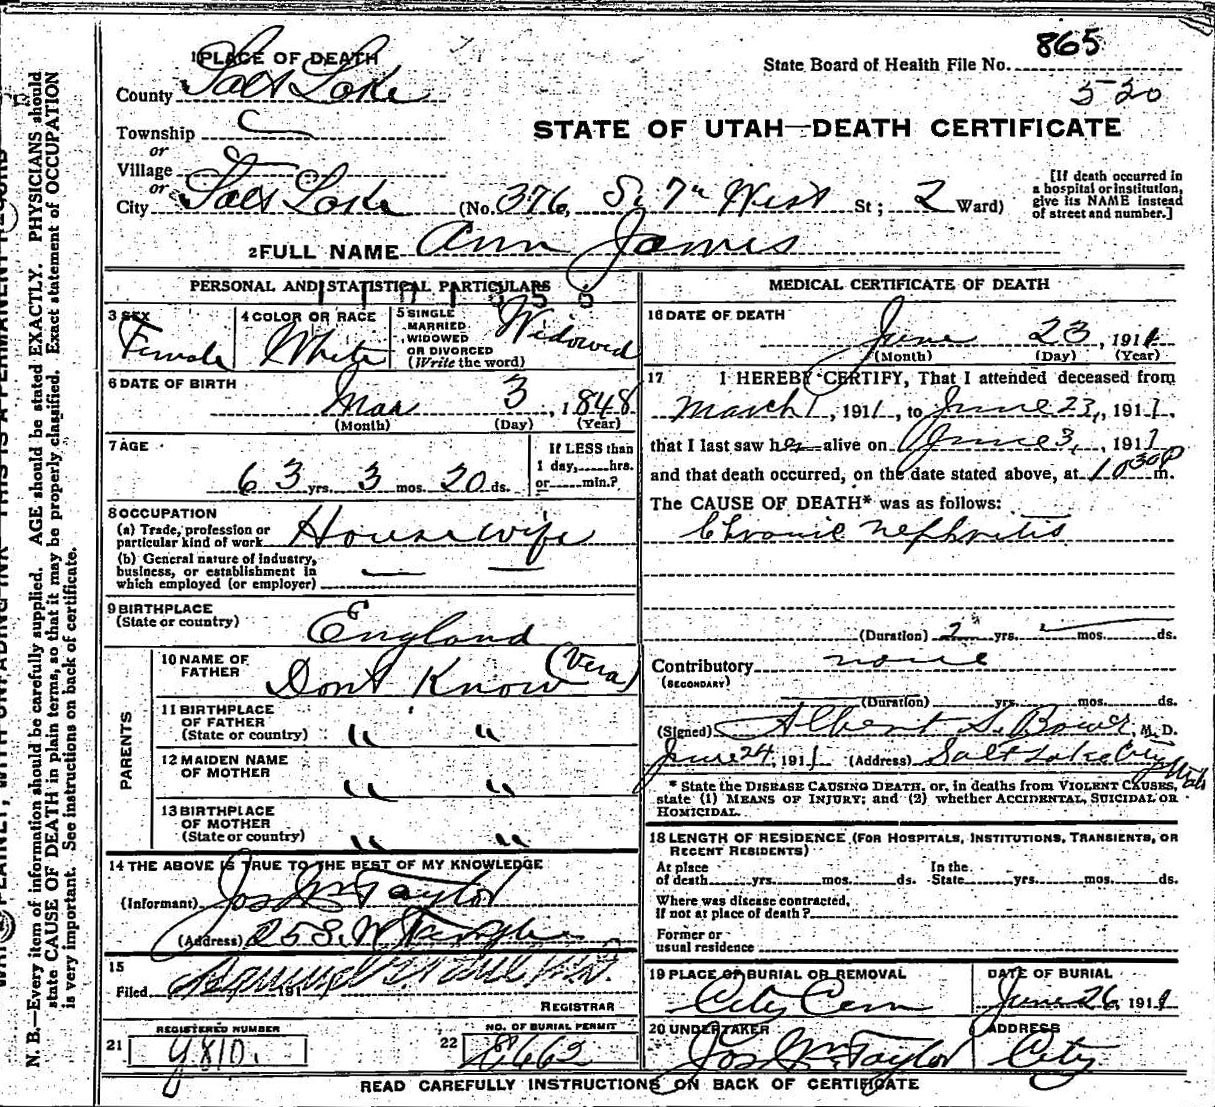 865
State Board of Health File No.
5-20
1 PLACE OF DEATH
County Salt Lake
STATE OF UTAH—DEATH CERTIFICATE
Township
or
Village
or
City Salt Lake (No. 376, So. 7th West St; 2 Ward)
[If death occurred in
a hospital or institution,
give its NAME instead
of street and number.]
2 FULL NAME Ann James
PERSONAL AND STATISTICAL PARTICULARS
3 SEX
Female
4 COLOR OR RACE
White
5 SINGLE
MARRIED
WIDOWED
OR DIVORCED
(Write the word)
Widowed
6 DATE OF BIRTH
Mar 3, 1848
(Month) (Day) (Year)
7 AGE
63 yrs. 3 mos. 20 ds.
If LESS than
1 day, hrs.
or min.?
8 OCCUPATION
(a) Trade, profession or
particular kind of work Housewife
(b) General nature of industry,
business, or establishment in
which employed (or employer)
9 BIRTHPLACE
(State or country) England
PARENTS
10 NAME OF
FATHER Dont Know (Vera)
11 BIRTHPLACE
OF FATHER
(State or country) " "
12 MAIDEN NAME
OF MOTHER " "
13 BIRTHPLACE
OF MOTHER
(State or country) " "
14 THE ABOVE IS TRUE TO THE BEST OF MY KNOWLEDGE
(Informant) Jos Wm Taylor
(Address) 25 S. W Temple
15
Filed 191
REGISTRAR
REGISTERED NUMBER
21 9810.
NO. OF BURIAL PERMIT
22 8662
MEDICAL CERTIFICATE OF DEATH
16 DATE OF DEATH
June 23, 1911
(Month) (Day) (Year)
17 I HEREBY CERTIFY, That I attended deceased from
March 1, 1911, to June 23, 1911,
that I last saw her alive on June 3, 1911
and that death occurred, on the date stated above, at 1030P m.
The CAUSE OF DEATH* was as follows:
Chronic nephritis
(Duration) 2 yrs. mos. ds.
Contributory none
(SECONDARY)
(Duration) yrs. mos. ds.
(Signed) Albert S. Bower, M. D.
June 24, 1911 (Address) Salt Lake City Utah
* State the DISEASE CAUSING DEATH, or, in deaths from VIOLENT CAUSES,
state (1) MEANS OF INJURY; and (2) whether ACCIDENTAL, SUICIDAL OR
HOMICIDAL.
18 LENGTH OF RESIDENCE (FOR HOSPITALS, INSTITUTIONS, TRANSIENTS, OR
RECENT RESIDENTS)
At place In the
of death yrs. mos. ds. State yrs. mos. ds.
Where was disease contracted,
if not at place of death?
Former or
usual residence
19 PLACE OF BURIAL OR REMOVAL
City Cem
DATE OF BURIAL
June 26, 1911
20 UNDERTAKER
Jos Wm Taylor
ADDRESS
City
READ CAREFULLY INSTRUCTIONS ON BACK OF CERTIFICATE
N. B.—Every item of information should be carefully supplied. AGE should be stated EXACTLY. PHYSICIANS should
state CAUSE OF DEATH in plain terms, so that it may be properly classified. Exact statement of OCCUPATION
is very important. See instructions on back of certificate.